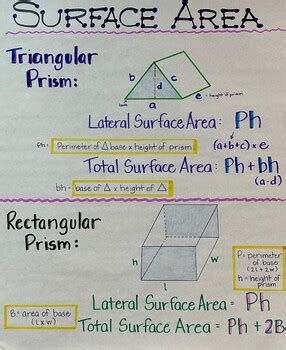 SURFACE AREA
Triangular
Prism:
b
c
d
a
e = height of prism
Lateral Surface Area: Ph
Ph= Perimeter of △ base x height of prism (a+b+c)×e
Total Surface Area: Ph + bh
bh = base of △ x height of △ (a·d)
Rectangular
Prism:
h
w
l
P= perimeter
of base
(2l+2w)
h= height of
prism
B = area of base
(l x w)
Lateral Surface Area = Ph
Total Surface Area = Ph + 2B